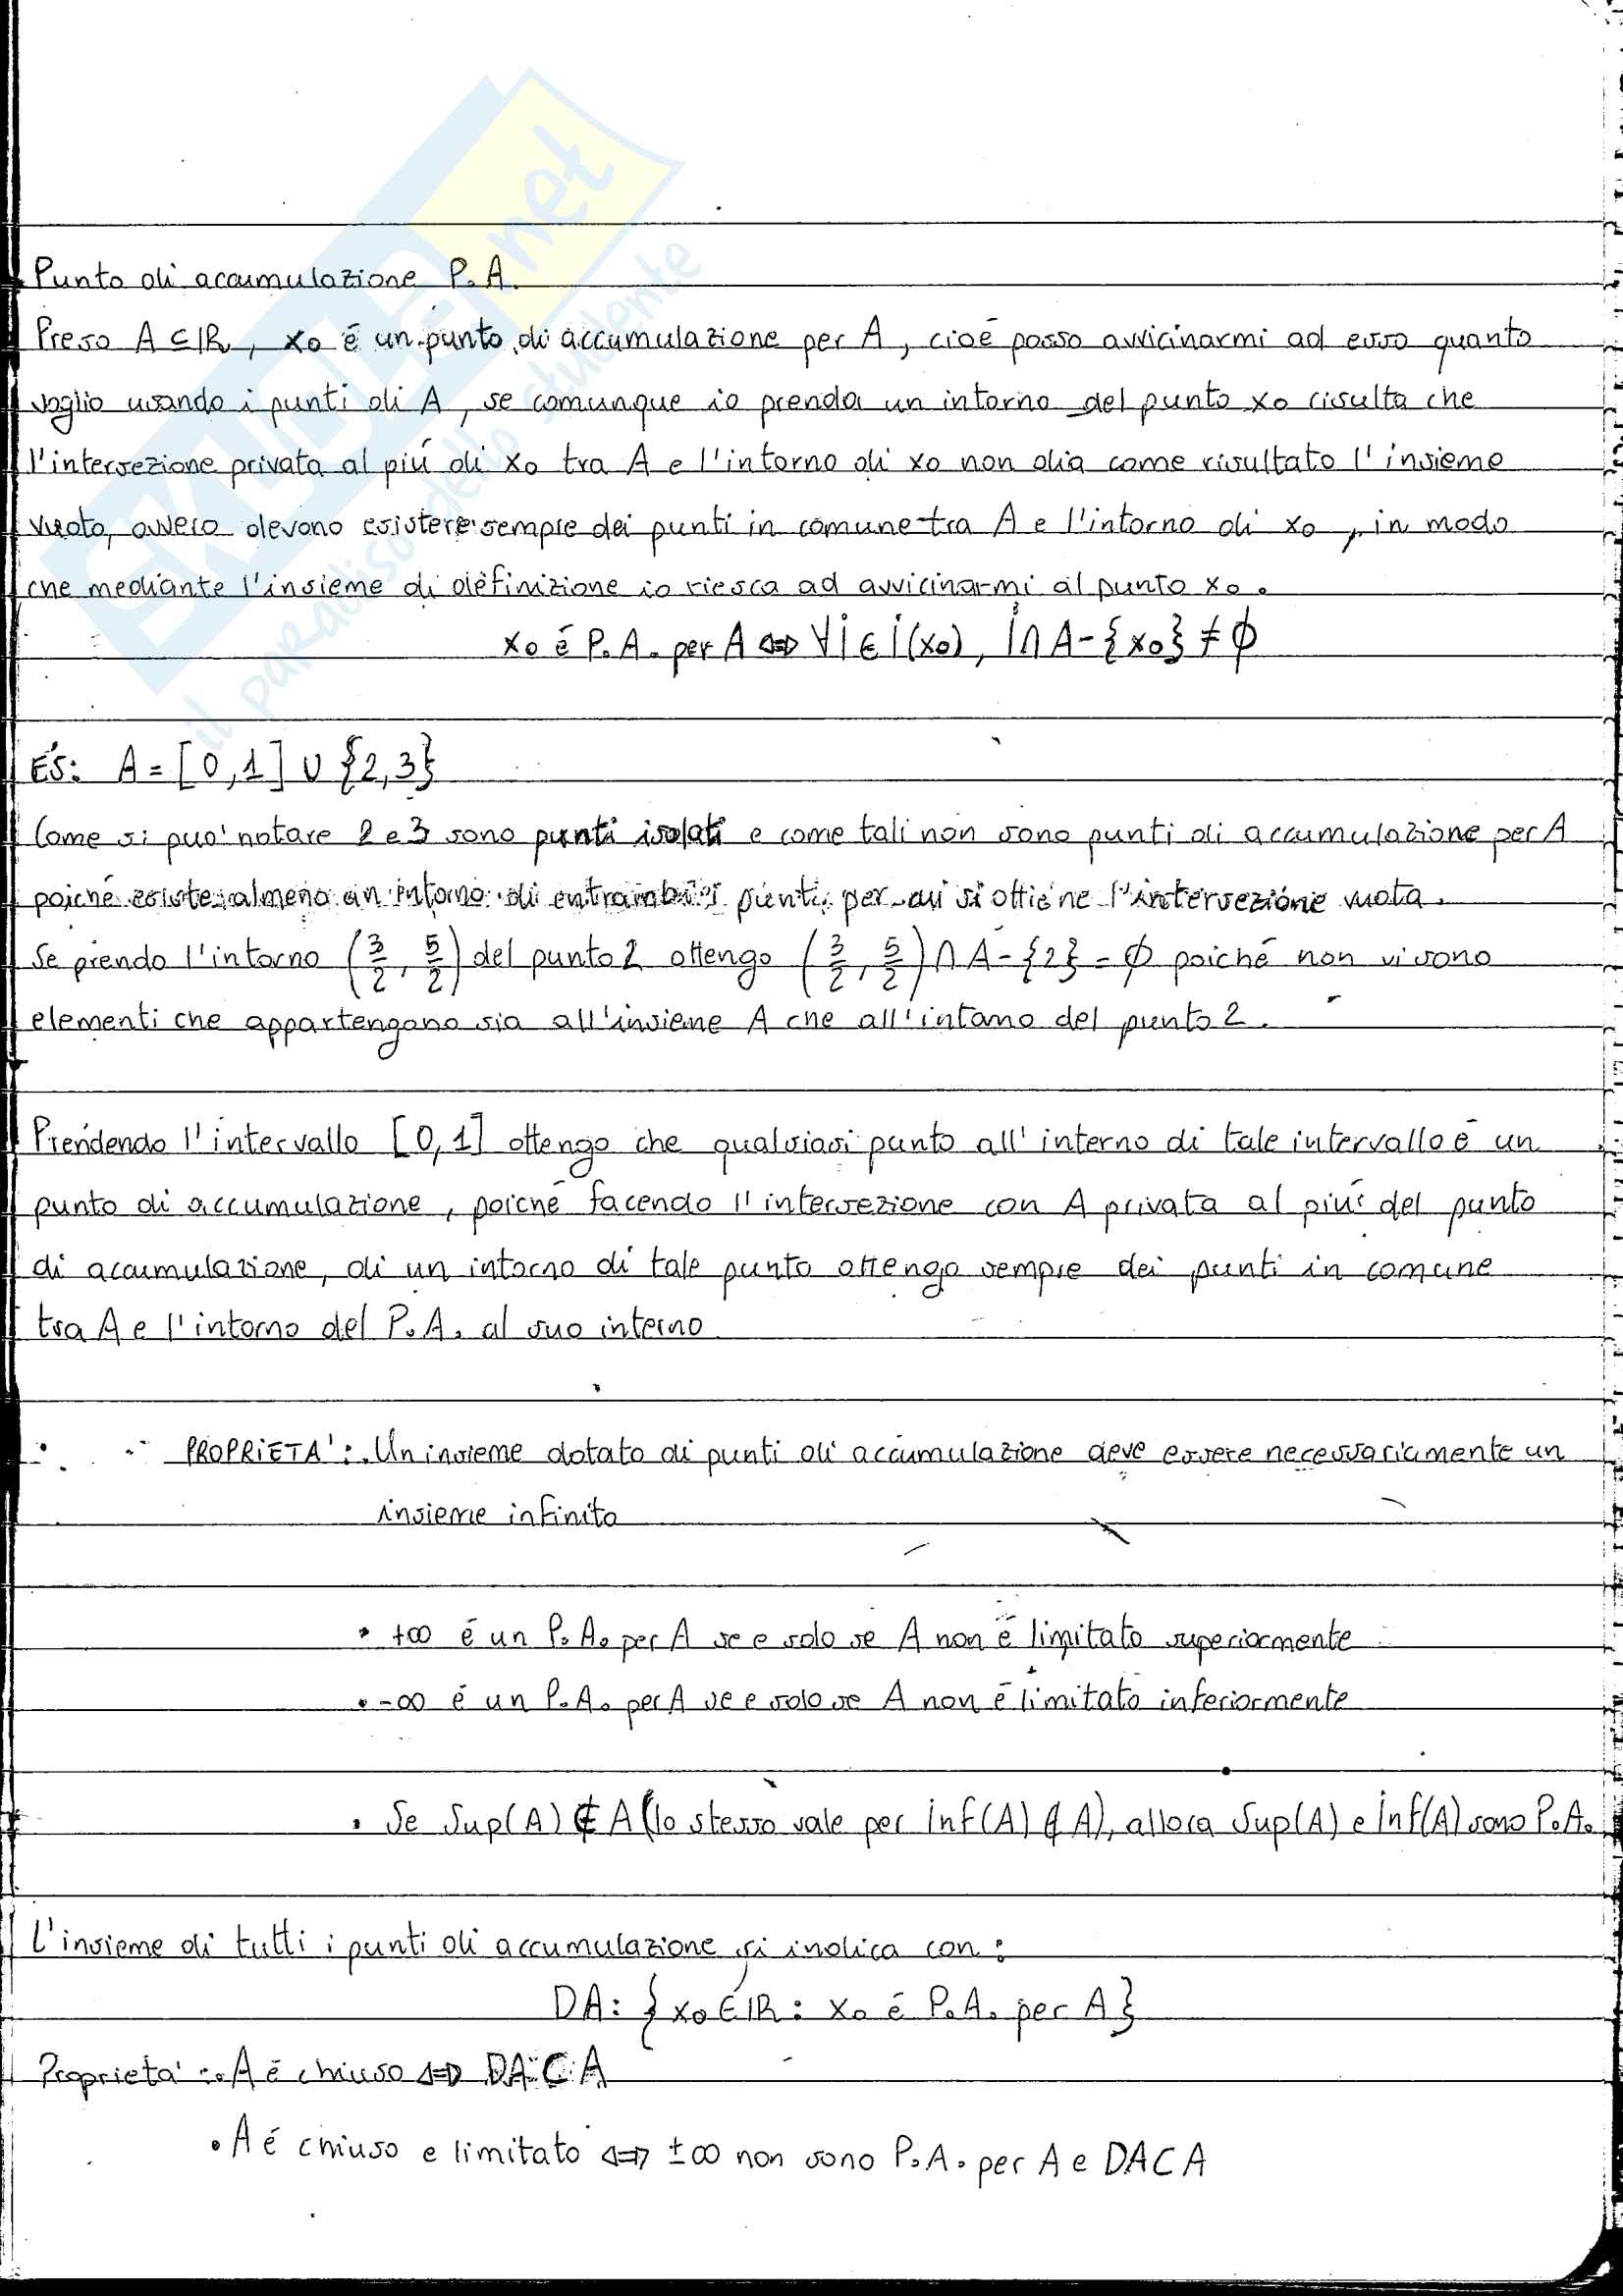 Punto di accumulazione P.A.
Preso A ⊆ ℝ, x₀ é un punto di accumulazione per A, cioé posso avvicinarmi ad esso quanto
voglio usando i punti di A, se comunque io prenda un intorno del punto x₀ risulta che
l'intersezione privata al piú di x₀ tra A e l'intorno di x₀ non dia come risultato l'insieme
vuoto, ovvero devono esistere sempre dei punti in comune tra A e l'intorno di x₀, in modo
che mediante l'insieme di definizione io riesca ad avvicinarmi al punto x₀.
x₀ é P.A. per A ⇔ ∀ i ∈ i(x₀), i ∩ A - {x₀} ≠ ∅
ES: A = [0,1] ∪ {2,3}
Come si puo' notare 2 e 3 sono punti isolati e come tali non sono punti di accumulazione per A
poiché esiste almeno un intorno di entrambi i punti per cui si ottiene l'intersezione vuota.
Se prendo l'intorno (3/2, 5/2) del punto 2 ottengo (3/2, 5/2) ∩ A - {2} = ∅ poiché non vi sono
elementi che appartengono sia all'insieme A che all'intorno del punto 2.
Prendendo l'intervallo [0,1] ottengo che qualsiasi punto all'interno di tale intervallo é un
punto di accumulazione, poiché facendo l'intersezione con A privata al piú del punto
di accumulazione, di un intorno di tale punto ottengo sempre dei punti in comune
tra A e l'intorno del P.A. al suo interno
PROPRIETA': Un insieme dotato di punti di accumulazione deve essere necessariamente un
insieme infinito
• +∞ é un P.A. per A se e solo se A non é limitato superiormente
• -∞ é un P.A. per A se e solo se A non é limitato inferiormente
• Se Sup(A) ∉ A (lo stesso vale per inf(A) ∉ A), allora Sup(A) e inf(A) sono P.A.
L'insieme di tutti i punti di accumulazione si indica con:
DA: {x₀ ∈ ℝ : x₀ é P.A. per A}
Proprieta': • A é chiuso ⇔ DA ⊂ A
• A é chiuso e limitato ⇔ ±∞ non sono P.A. per A e DA ⊂ A
SKUOLA.net
il paradiso dello studente